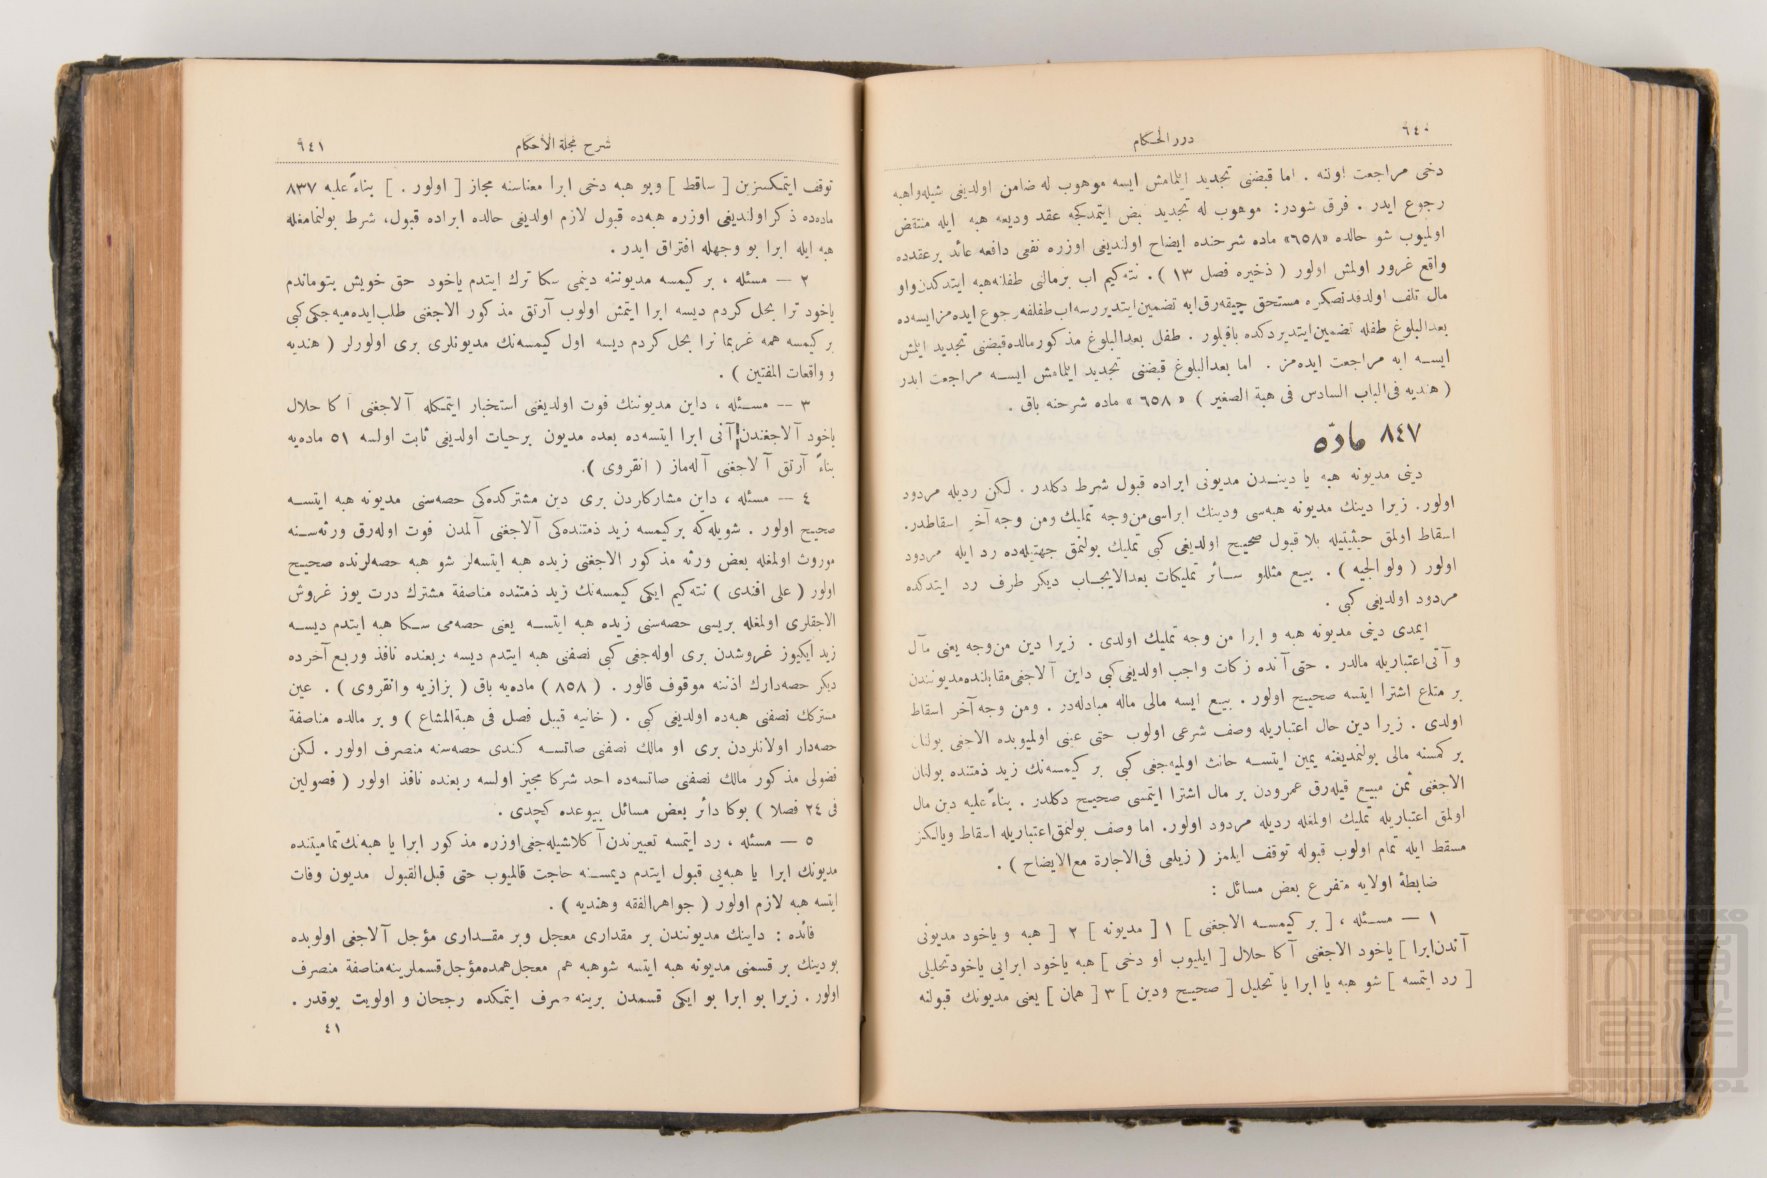 ٦٤٠
درر الحكام
دخى مراجعت اولنه . اما قبضنى تجديد ايتمامش ايسه موهوب له ضامن اولديغى شيله واهبه
رجوع ايدر . فرق شودر : موهوب له تجديد قبض ايتمدكجه عقد وديعه هبه ايله منتقض
اولميوب شو حالده «٦٥٨» ماده شرحنده ايضاح اولنديغى اوزره نفعى دافعه عائد بر عقدده
واقع غرور اولمش اولور ( ذخيره فصل ١٣ ) . نته كيم اب بر مالنى طفلنه هبه ايتدكدن واو
مال تلف اولدقدنصكره مستحق چيقه رق ابه تضمين ايتديررسه اب طفلنه رجوع ايده مز ايسه ده
بعدالبلوغ طفله تضمين ايتديردكده باقيلور . طفل بعدالبلوغ مذكور مالده قبضنى تجديد ايتمش
ايسه ابه مراجعت ايده مز . اما بعدالبلوغ قبضنى تجديد ايتمامش ايسه مراجعت ايدر
( هنديه فى الباب السادس فى هبة الصغير ) « ٦٥٨ » ماده شرحنه باق .
٨٤٧ مادّه
دينى مديونه هبه يا ديندن مديونى ابراده قبول شرط دكلدر . لكن رديله مردود
اولور . زيرا دينك مديونه هبه سى ودينك ابراسى من وجه تمليك ومن وجه آخر اسقاطدر .
اسقاط اولمق حيثيتيله بلا قبول صحيح اولديغى كبى تمليك بولنمق جهتيله ده رد ايله مردود
اولور ( ولوالجيه ) . بيع مثللو سائر تمليكات بعدالايجاب ديكر طرف رد ايتدكده
مردود اولديغى كبى .
ايمدى دينى مديونه هبه و ابرا من وجه تمليك اولدى . زيرا دين من وجه يعنى مآل
و آتى اعتباريله مالدر . حتى آنده زكات واجب اولديغى كبى داين آلاجغى مقابلنده مديونندن
بر متاع اشترا ايتسه صحيح اولور . بيع ايسه مالى ماله مبادله در . ومن وجه آخر اسقاط
اولدى . زيرا دين حال اعتباريله وصف شرعى اولوب حتى عينى اولميوبده الاجغى بولنان
بر كمسنه مالى بولنمديغنه يمين ايتسه حانث اولميه جغى كبى بر كيمسه نك زيد ذمتنده بولنان
الاجغنى ثمن مبيع قيله رق عمرودن بر مال اشترا ايتمسى صحيح دكلدر . بناءً عليه دين مال
اولمق اعتباريله تمليك اولمغله رديله مردود اولور . اما وصف بولنمق اعتباريله اسقاط ويالكز
مسقط ايله تمام اولوب قبوله توقف ايلمز ( زيلعى فى الاجارة مع الايضاح ) .
ضابطهٔ اولايه متفرع بعض مسائل :
١ — مسئله ، [ بر كيمسه الاجغنى ] ١ [ مديونه ] ٢ [ هبه و ياخود مديونى
آندن ابرا ] ياخود الاجغنى آكا حلال [ ايليوب او دخى ] هبه ياخود ابرايى ياخود تحليلى
[ رد ايتمسه ] شو هبه يا ابرا يا تحليل [ صحيح ودين ] ٣ [ همان ] يعنى مديونك قبولنه
٦٤١
شرح مجلة الاحكام
توقف ايتمكسزين [ ساقط ] وبو هبه دخى ابرا معناسنه مجاز [ اولور . ] بناءً عليه ٨٣٧
ماده ده ذكر اولنديغى اوزره هبه ده قبول لازم اولديغى حالده ابراده قبول، شرط بولنمامغله
هبه ايله ابرا بو وجهله افتراق ايدر .
٢ — مسئله ، بر كيمسه مديوننه دينمى سكا ترك ايتدم ياخود حق خويش بتوماندم
ياخود ترا بحل كردم ديسه ابرا ايتمش اولوب آرتق مذكور الاجغنى طلب ايده ميه جكى كبى
بر كيمسه همه غربما ترا بحل كردم ديسه اول كيمسه نك مديونلرى برى اولورلر ( هنديه
و واقعات المفتين ) .
٣ — مسئله ، داين مديوننك فوت اولديغنى استخبار ايتمكله آلاجغنى اكا حلال
ياخود آلاجغندن آنى ابرا ايتسه ده بعده مديون برحيات اولديغى ثابت اولسه ٥١ ماده يه
بناءً آرتق آلاجغنى آله ماز ( انقروى ) .
٤ — مسئله ، داين مشاركلردن برى دين مشتركده كى حصه سنى مديونه هبه ايتسه
صحيح اولور . شويله كه بر كيمسه زيد ذمتنده كى آلاجغنى آلمدن فوت اوله رق ورثه سنه
موروث اولمغله بعض ورثه مذكور الاجغنى زيده هبه ايتسه لر شو هبه حصه لرنده صحيح
اولور ( على افندى ) نته كيم ايكى كيمسه نك زيد ذمتنده مناصفة مشترك درت يوز غروش
الاجقلرى اولمغله بريسى حصه سنى زيده هبه ايتسه يعنى حصه مى سكا هبه ايتدم ديسه
زيد ايكيوز غروشدن برى اوله جغى كبى نصفنى هبه ايتدم ديسه ربعنده نافذ وربع آخرده
ديكر حصه دارك اذننه موقوف قالور . ( ٨٥٨ ) ماده يه باق ( بزازيه وانقروى ) . عين
مشتركك نصفنى هبه ده اولديغى كبى . ( خانيه قبيل فصل فى هبة المشاع ) و بر مالده مناصفة
حصه دار اولانلردن برى او مالك نصفنى صاتسه كندى حصه سنه منصرف اولور . لكن
فضولى مذكور مالك نصفنى صاتسه ده احد شركا مجيز اولسه ربعنده نافذ اولور ( فصولين
فى ٢٤ فصلا ) بوكا دائر بعض مسائل بيوعده كچدى .
٥ — مسئله ، رد ايتمسه تعبيرندن آكلاشيله جغى اوزره مذكور ابرا يا هبه نك تماميتنده
مديونك ابرا يا هبه يى قبول ايتدم ديمسنه حاجت قالميوب حتى قبل القبول مديون وفات
ايتسه هبه لازم اولور ( جواهر الفقه وهنديه ) .
فائده : داينك مديونندن بر مقدارى معجل وبر مقدارى مؤجل آلاجغى اولوبده
بو دينك بر قسمنى مديونه هبه ايتسه شو هبه هم معجل همده مؤجل قسملرينه مناصفة منصرف
اولور . زيرا بو ابرا بو ايكى قسمدن برينه صرف ايتمكده رجحان و اولويت يوقدر .
٤١
TOYO BUNKO